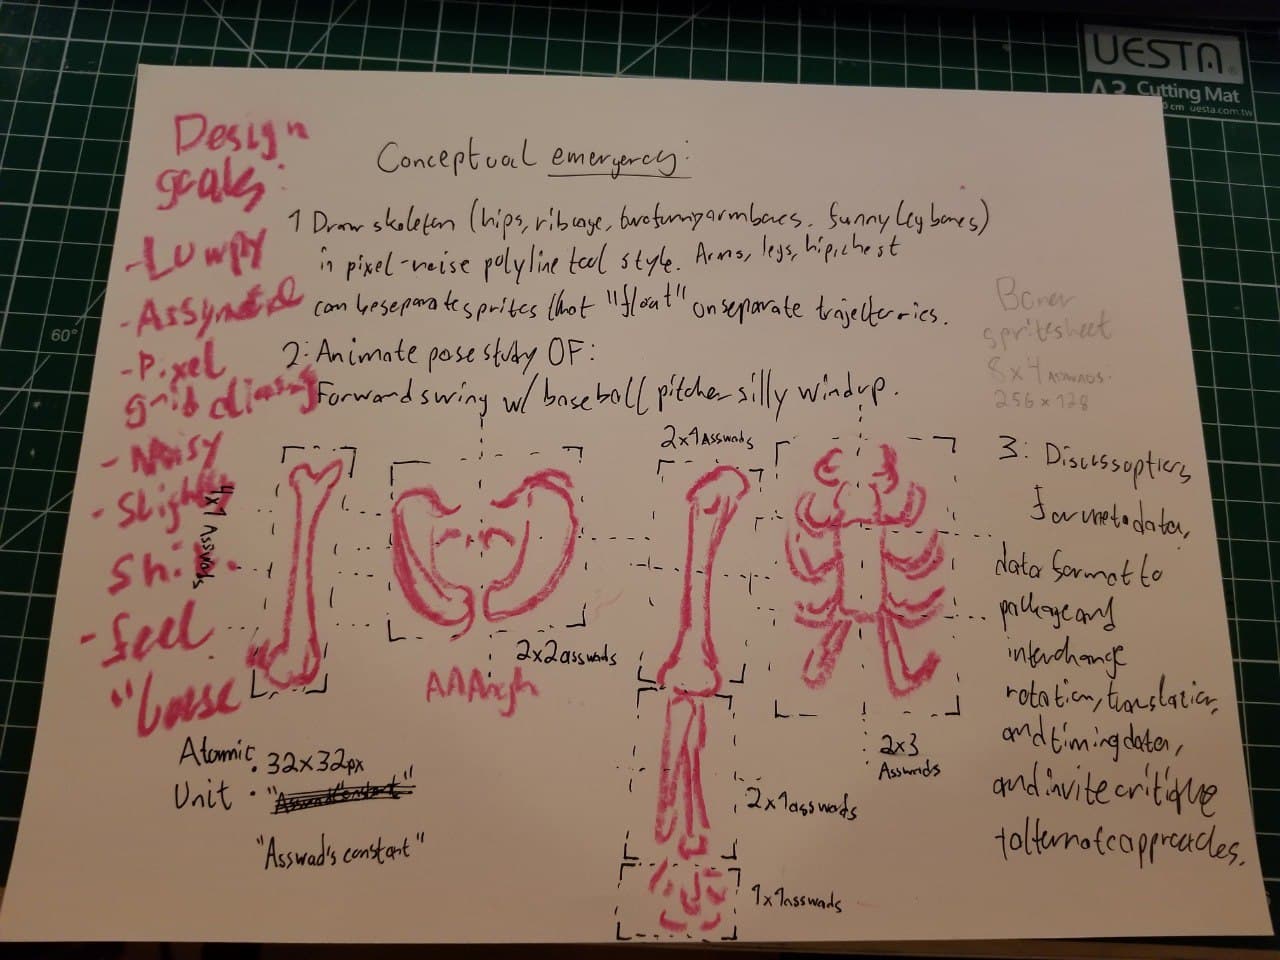 UESTA
A3 Cutting Mat
uesta.com.tw
60°
Design
goals:
- Lumpy
- Assymetd
- Pixel
grid aliasing
- Noisy
- Slightly
Shit.
- feel
"loose
Conceptual emergency:
1 Draw skeleton (hips, ribcage, two funny arm bones. funny leg bones)
in pixel-noise polyline tool style. Arms, legs, hip, chest
can be separate sprites that "float" on separate trajectories.
2: Animate pose study OF:
Forward swing w/ baseball pitcher silly windup.
Boner
spritesheet
8x4 Asswads.
256x128
4x1 Asswads
2x2 asswads
AAArgh
2x1 Asswads
2x3
Asswads
2x1 asswads
1x1 asswads
Atomic
Unit : 32x32px
"Asswad's constant"
3: Discuss options
for metadata,
data format to
package and
interchange
rotation, translation,
and timing data,
and invite critique
to alternate approaches.